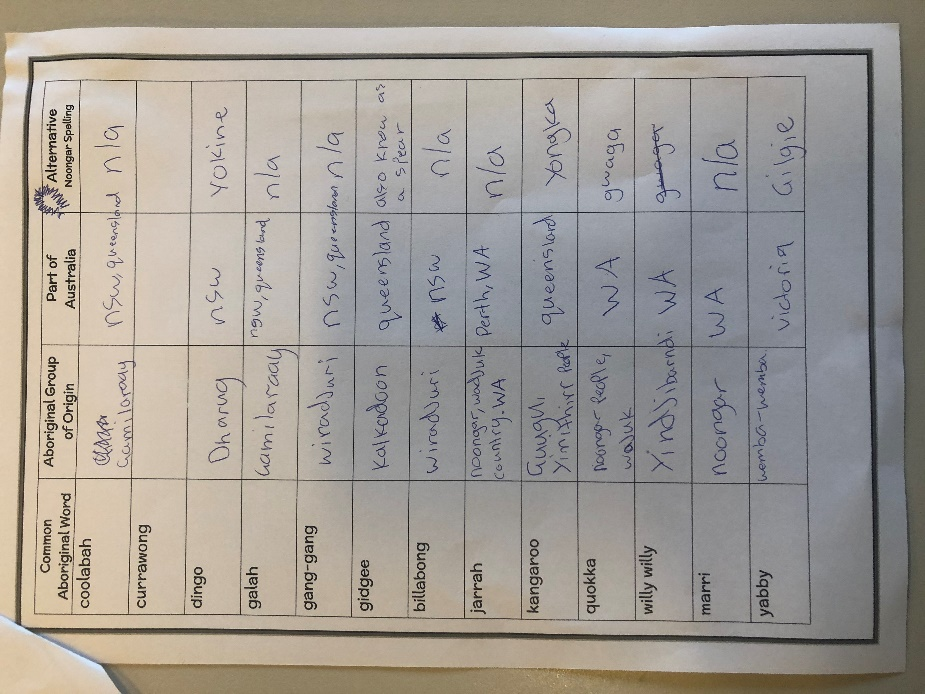 Common Aboriginal Word | Aboriginal Group of Origin | Part of Australia | Alternative Noongar Spelling
coolabah | Gamilaraay | nsw, queensland | n/a
currawong
dingo | Dharug | nsw | Yokine
galah | Gamilaraay | nsw, queensland | n/a
gang-gang | wiradjuri | nsw, queensland | n/a
gidgee | Kalkadoon | queensland | also know as a spear
billabong | wiradjuri | nsw | n/a
jarrah | noongar, wadjuk country. WA | Perth, WA | n/a
kangaroo | Guugu Yimithirr People | queensland | Yongka
quokka | noongar People, wadjuk | WA | gwaga
willy willy | Yindjibarndi | WA
marri | noongar | WA | n/a
yabby | wemba-wemba | victoria | Gilgie